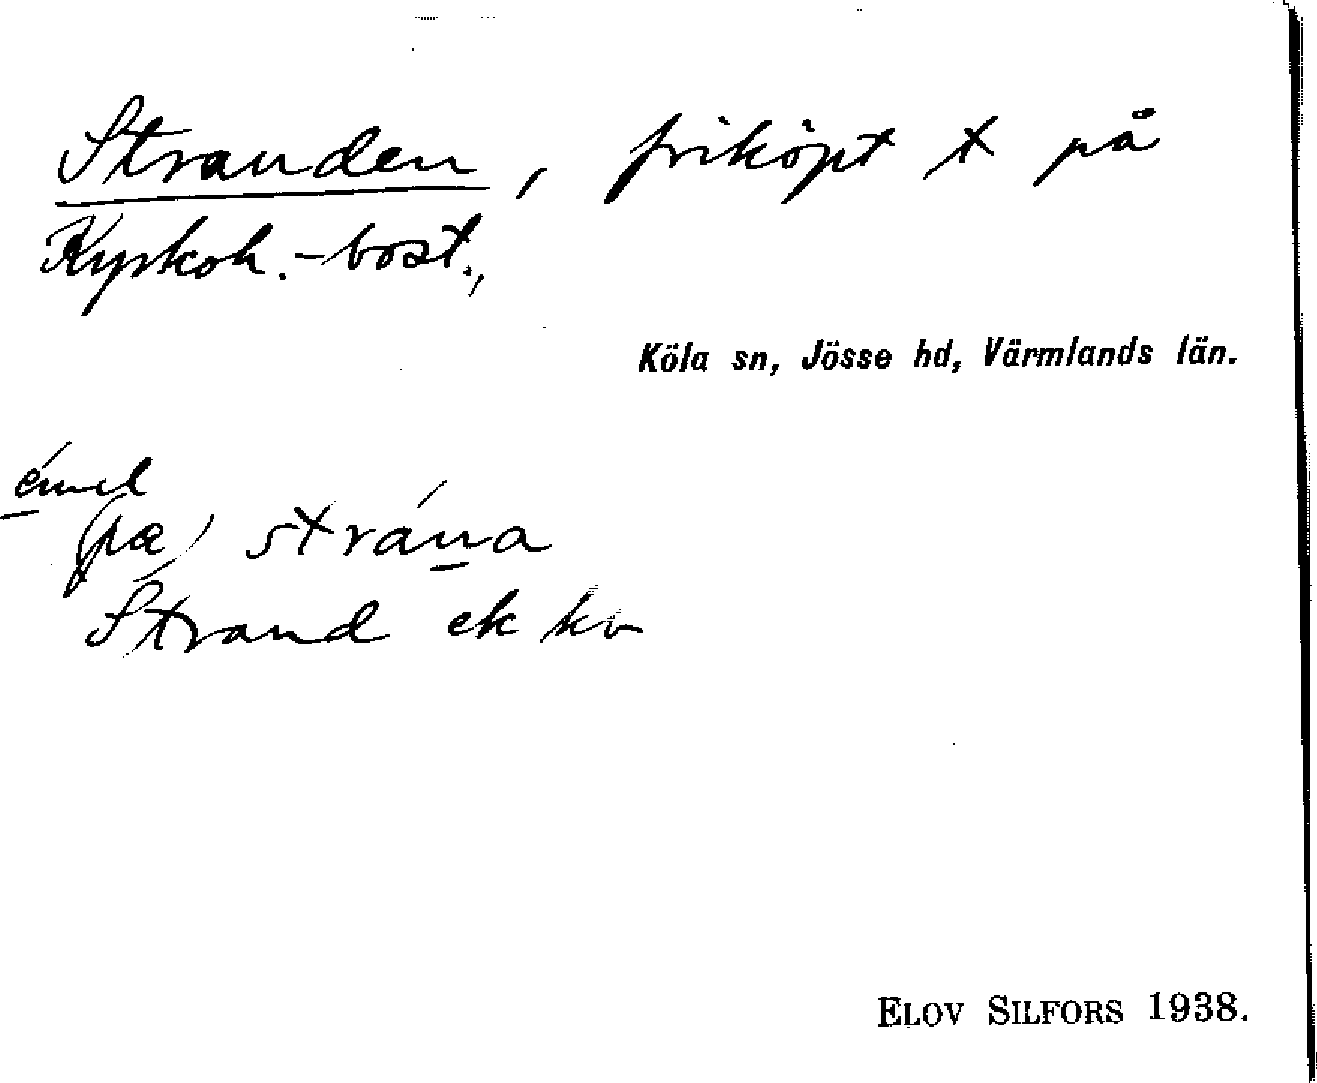 Stranden, friköpt t på
Kyrkoh.-bost.,
Köla sn, Jösse hd, Värmlands län.
(pæ) strána
Strand ek kv
ELOV SILFORS 1938.